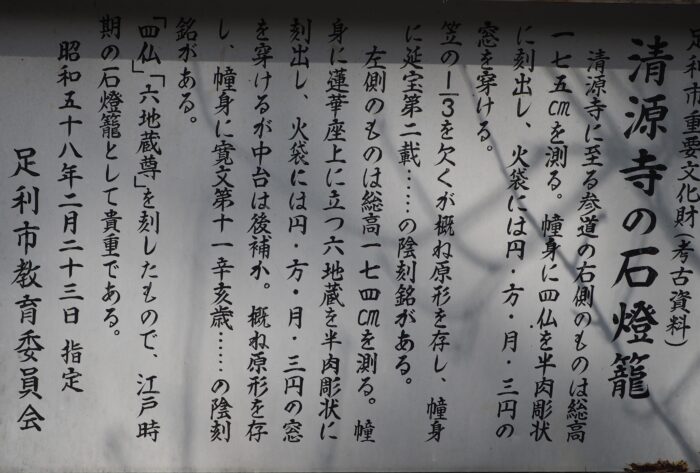 足利市重要文化財(考古資料)
清源寺の石燈籠
清源寺に至る参道の右側のものは総高
一七五㎝を測る。幢身に四仏を半肉彫状
に刻出し、火袋には円・方・月・三円の
窓を穿ける。
笠の1/3を欠くが概ね原形を存し、幢身
に延宝第二載……の陰刻銘がある。
左側のものは総高一七四㎝を測る。幢
身に蓮華座上に立つ六地蔵を半肉彫状に
刻出し、火袋には円・方・月・三円の窓
を穿けるが中台は後補か。概ね原形を存
し、幢身に寛文第十一辛亥歳……の陰刻
銘がある。
「四仏」「六地蔵尊」を刻したもので、江戸時
期の石燈籠として貴重である。
昭和五十八年二月二十三日 指定
足利市教育委員会